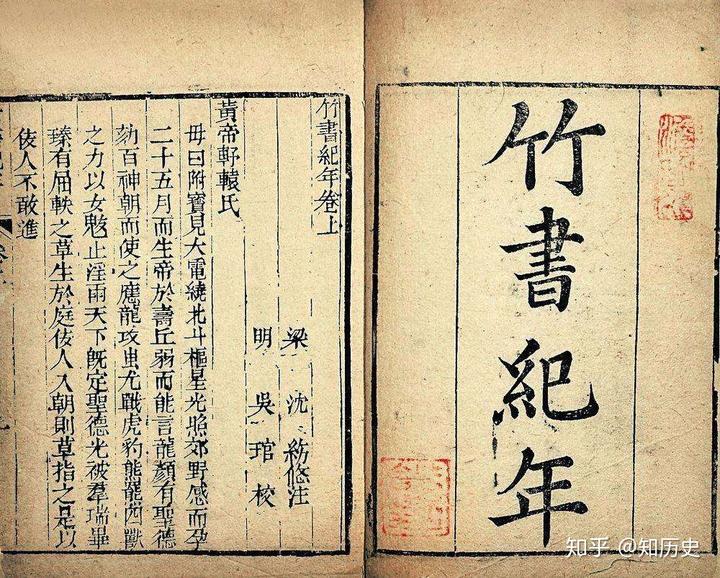 竹書紀年
竹書紀年卷上
梁 沈 注
明 吳琯 校
黃帝軒轅氏
母曰附寶見大電繞北斗樞星光照郊野感而孕
二十五月而生帝於壽丘弱而能言龍顏有聖德
劾百神朝而使之應龍攻蚩尤戰虎豹熊羆四獸
之力以女魃止淫雨天下既定聖德光被羣瑞畢
臻有屈軼之草生於庭佞人入朝則草指之是以
佞人不敢進
知乎 @知历史